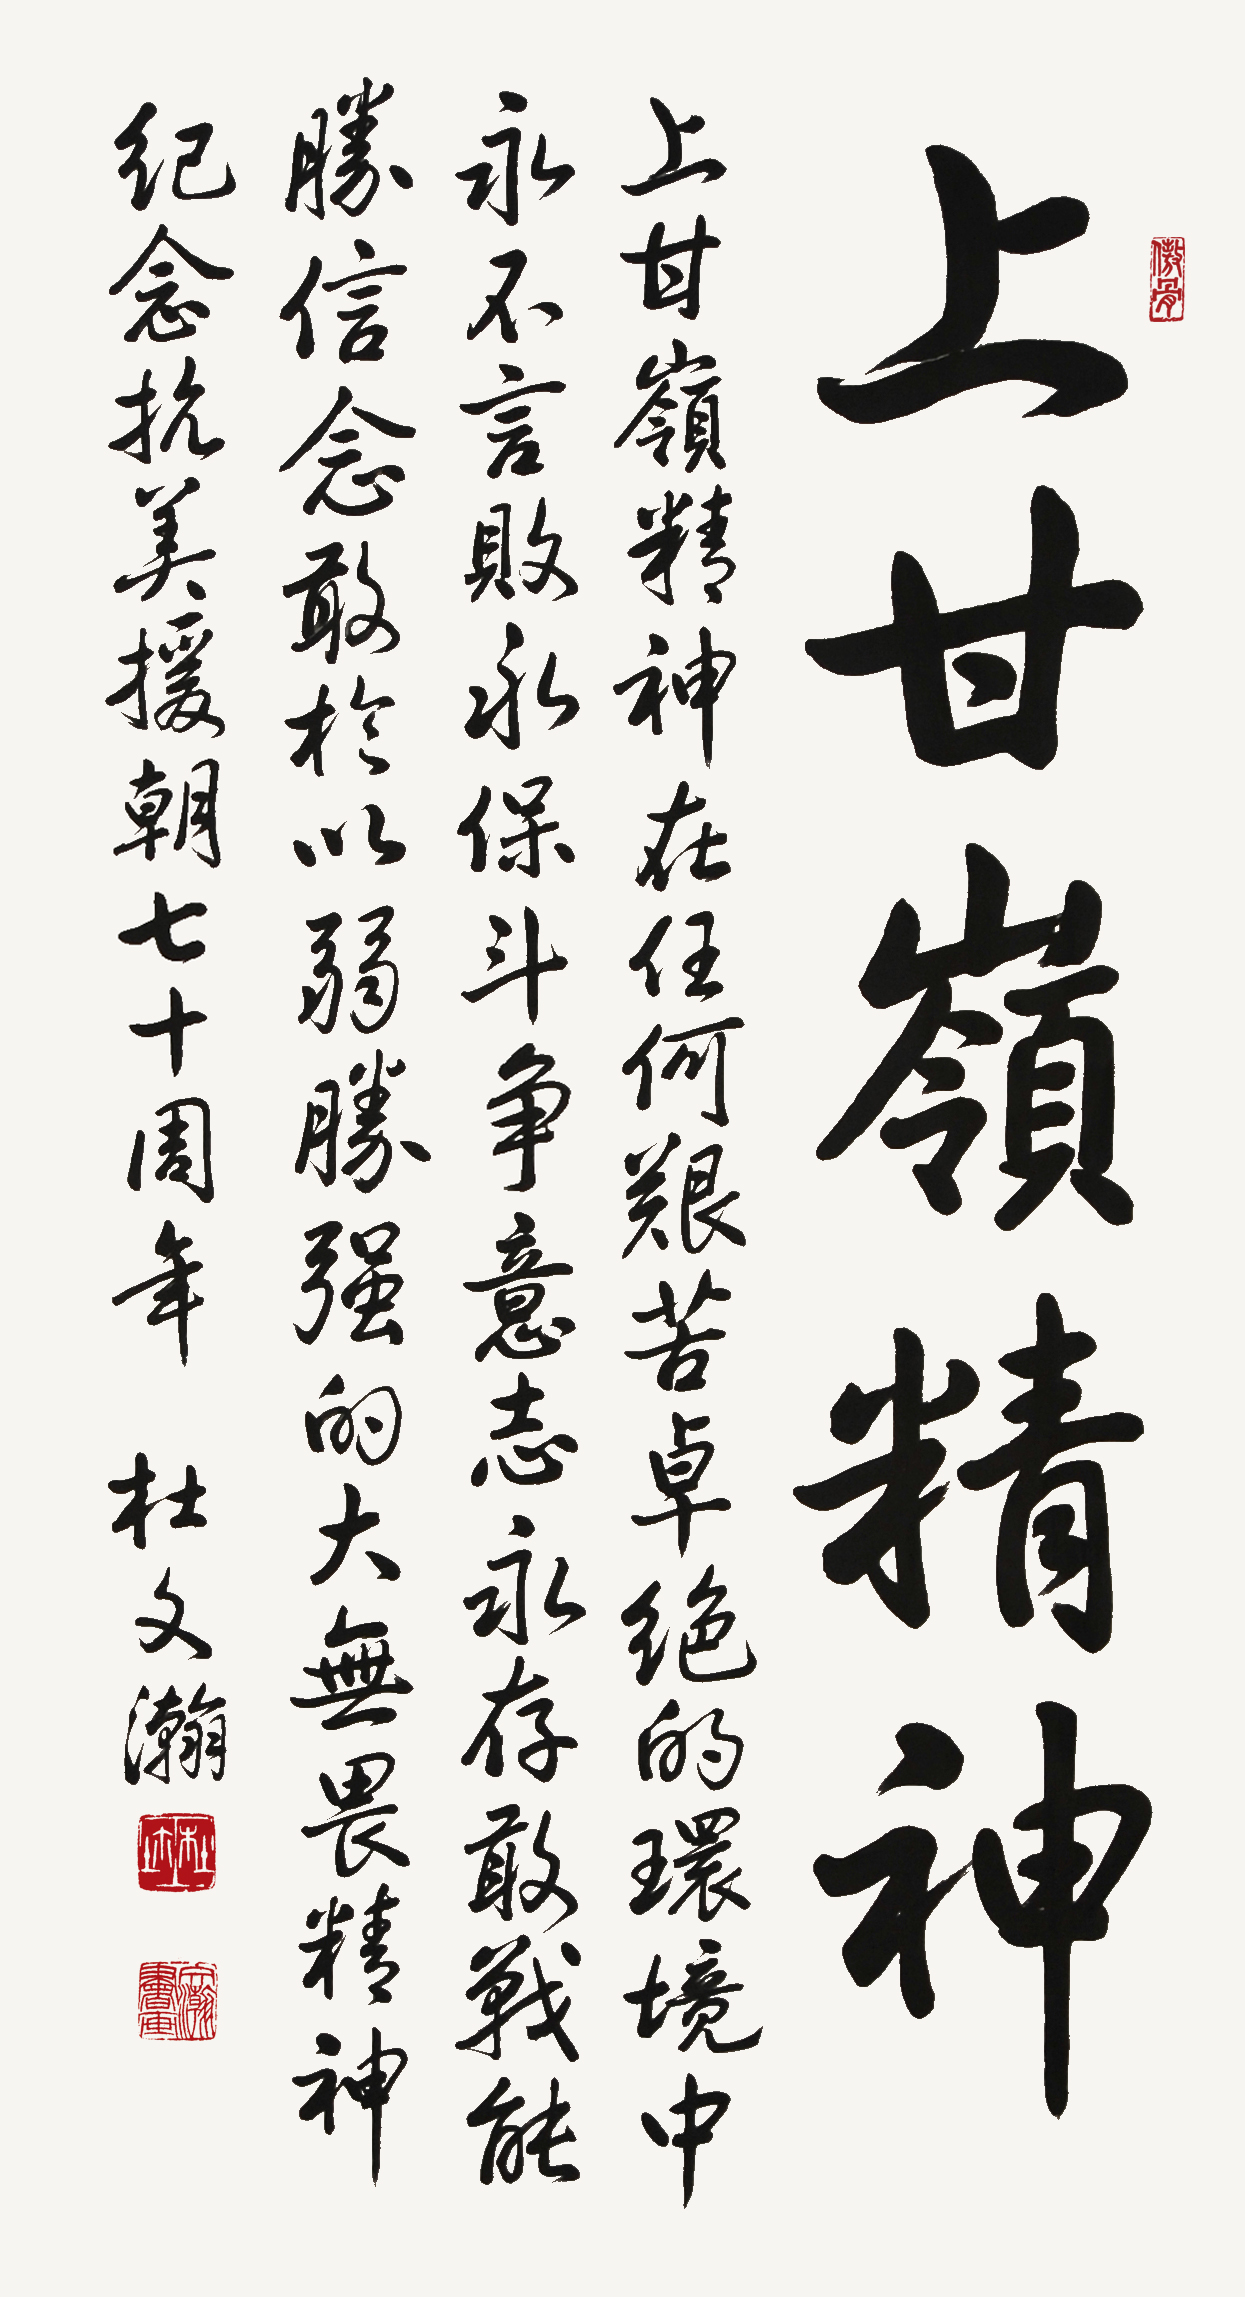 上甘嶺精神
傲骨
上甘嶺精神在任何艱苦卓绝的環境中
永不言敗永保斗争意志永存敢戰能
勝信念敢於以弱勝强的大無畏精神
纪念抗美援朝七十周年 杜文瀚